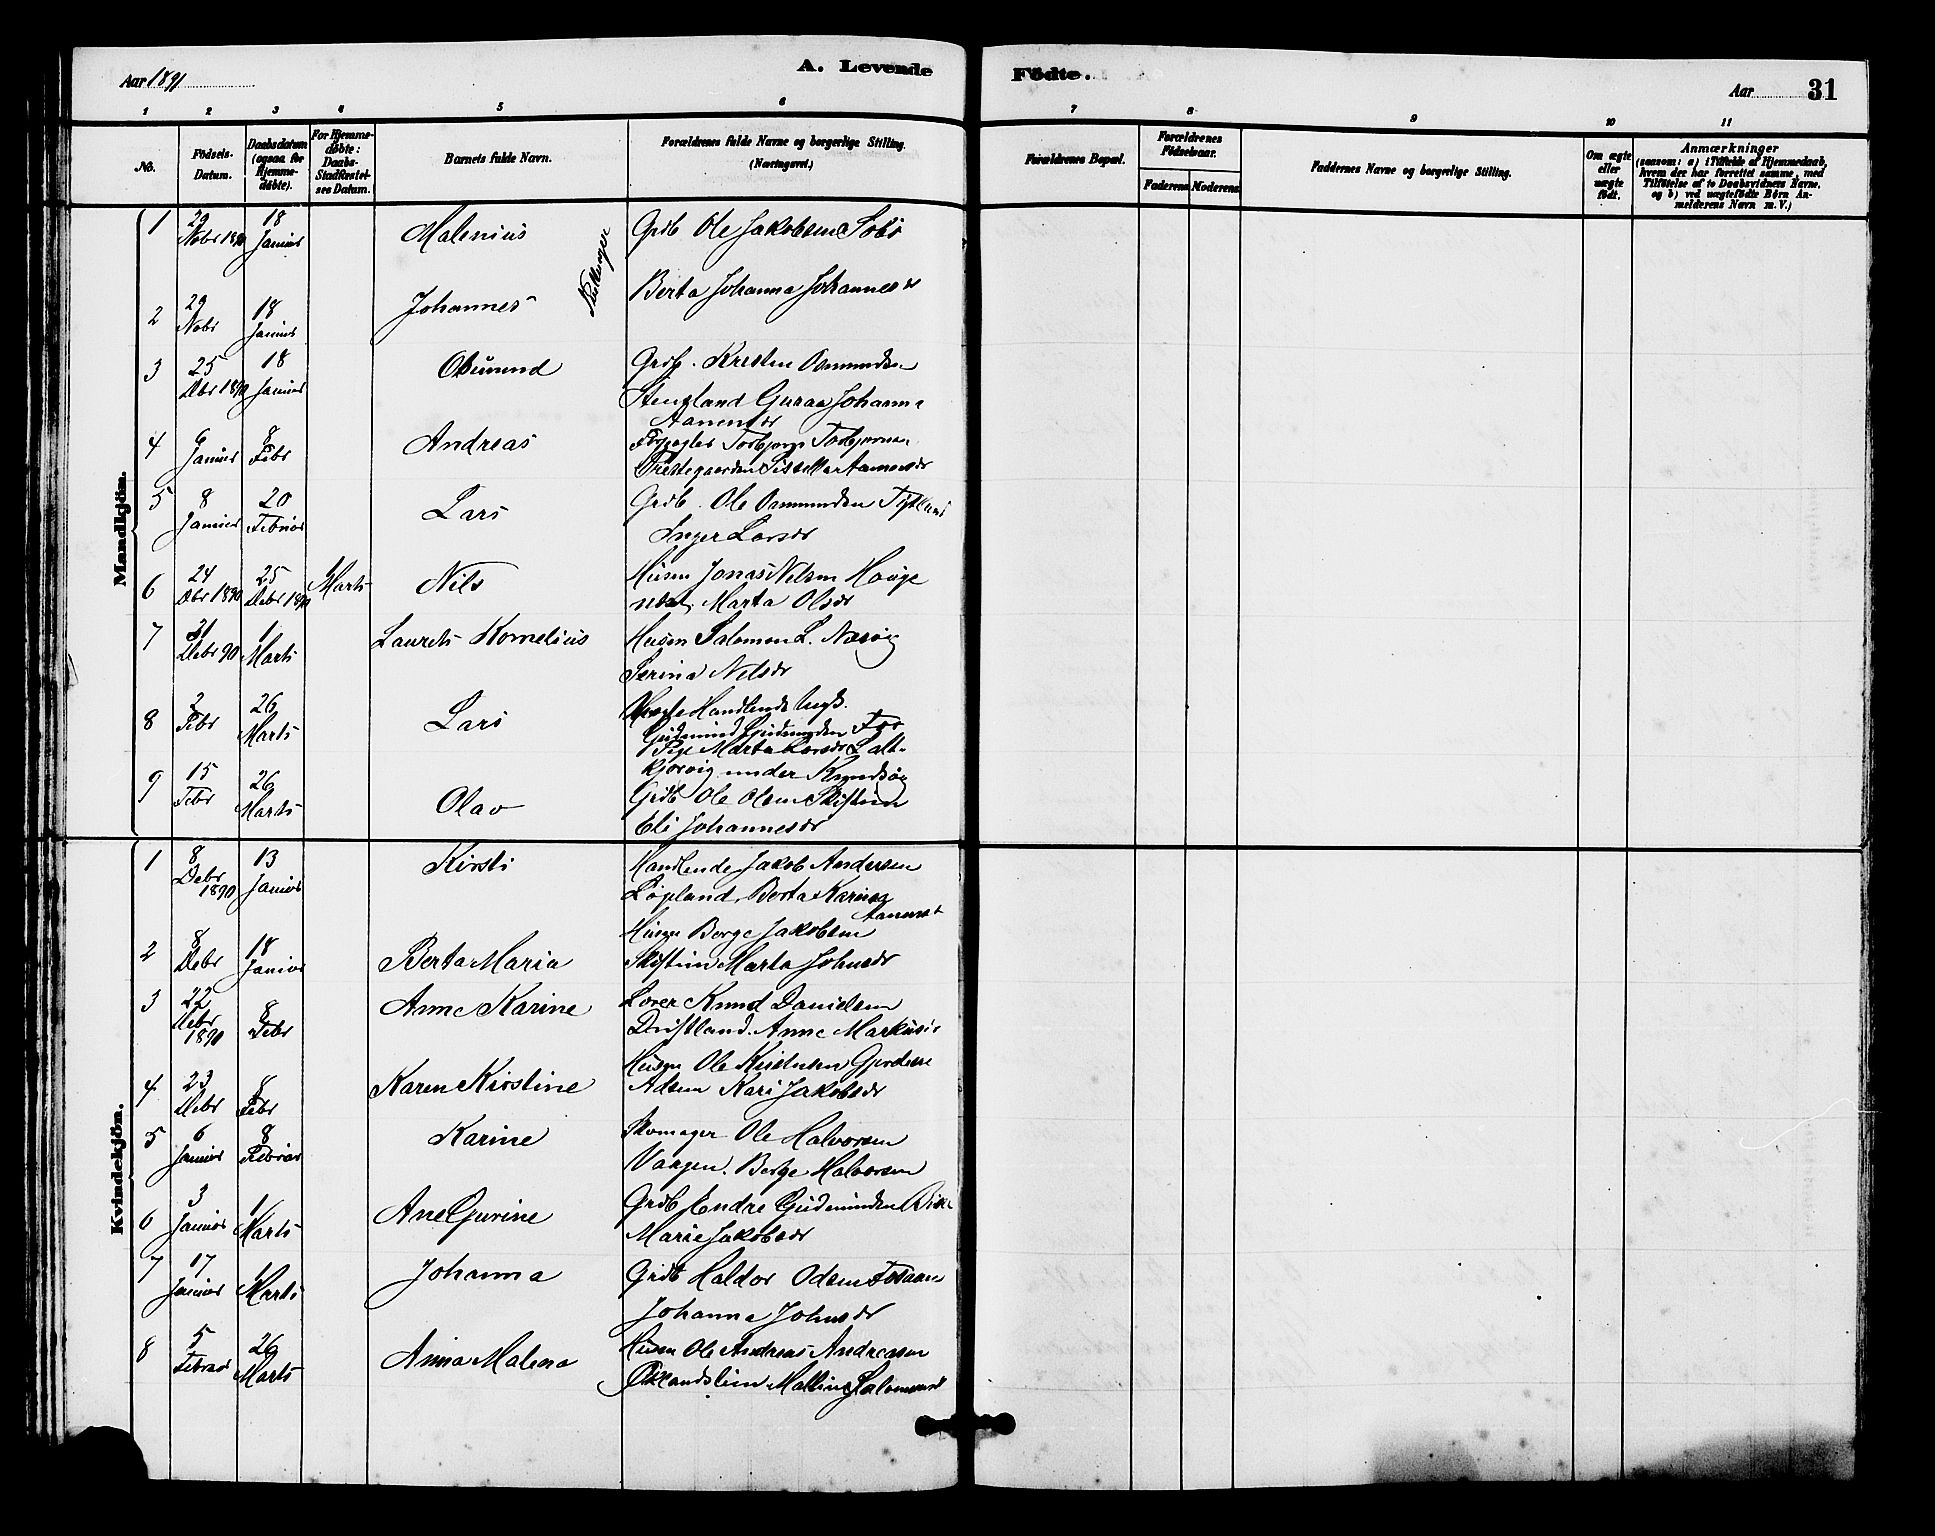 Aar 1891
A. Levende
Födte.
Aar 31
1 2 3 4 5 6 7 8 9 10 11
No.
Födsels-Datum.
Daabsdatum (ogsaa for Hjemme-döbte).
For Hjemme-döbte: Daabs-Stadfæstel-ses Datum.
Barnets fulde Navn.
Forældrenes fulde Navne og borgerlige Stilling.
(Næringsvei.)
Forældrenes Bopæl.
Forældrenes Födselsaar.
Faderens Moderens
Faddernes Navne og borgerlige Stilling.
Om ægte eller uægte födt.
Anmærkninger
(saasom: a) i Tilfælde af Hjemmedaab,
hvem der har forrettet samme, med
Tilföielse af to Daabsvidners Navne.
og b) ved uægtefödte Börn An-
melderens Navn m. V.)
Mandkjön.
1 29 Nobr 1890 18 Januar Malenius Grdb Ole Jakobsen
2 29 Nobr 18 Januar Johannes Berta Johanna Johannesdr
3 25 Debr 1890 18 Januar Osmund Grdb. Kristen Osmundsen
Johanna
4 Januar 8 Febr Andreas Torbjørn
5 8 Januar 20 Februar Lars Grdb. Ole Osmundsen
Inger Larsdr
6 24 Dbr 1890 25 Debr 1890 Marts Nils Husm Jonas Nilsen Houge
Marta Olsdr
7 31 Debr 90 1 Marts Laurits Kornelius Husm Salomon L.
Serina Nilsdr
8 2 Febr 26 Marts Lars Handlende
Gudmund Gudmundsen
Pige Marta Larsdr
under
9 15 Febr 26 Marts Olav Grdb Ole Olsen
Eli Johannesdr
Kvindekjön.
1 8 Debr 1890 13 Januar Kirsti Handlende Jakob Andersen
Berta Karina
2 8 Debr 18 Januar Berta Maria Husm Børge Jakobsen
Marta Johnsdr
3 22 Debr 1890 8 Febr Anne Karine Knud Danielsen
Anne
4 23 Debr 8 Febr Karen Kirstine Husm Ole
Kari Jakobsdr
5 6 Januar 8 Februar Karine Skomager Ole Halvorsen
Vaagen. Halvorsen
6 3 Januar 1 Marts Ane Gurine Grdb Endre Gudmundsen
Marie Jakobsdr
7 17 Januar 1 Marts Johanna Grdb Haldor Odsen Fosaaen
Johanna Johnsdr
8 5 Februar 26 Marts Anna Malena Husm Ole Andreas Andreasen